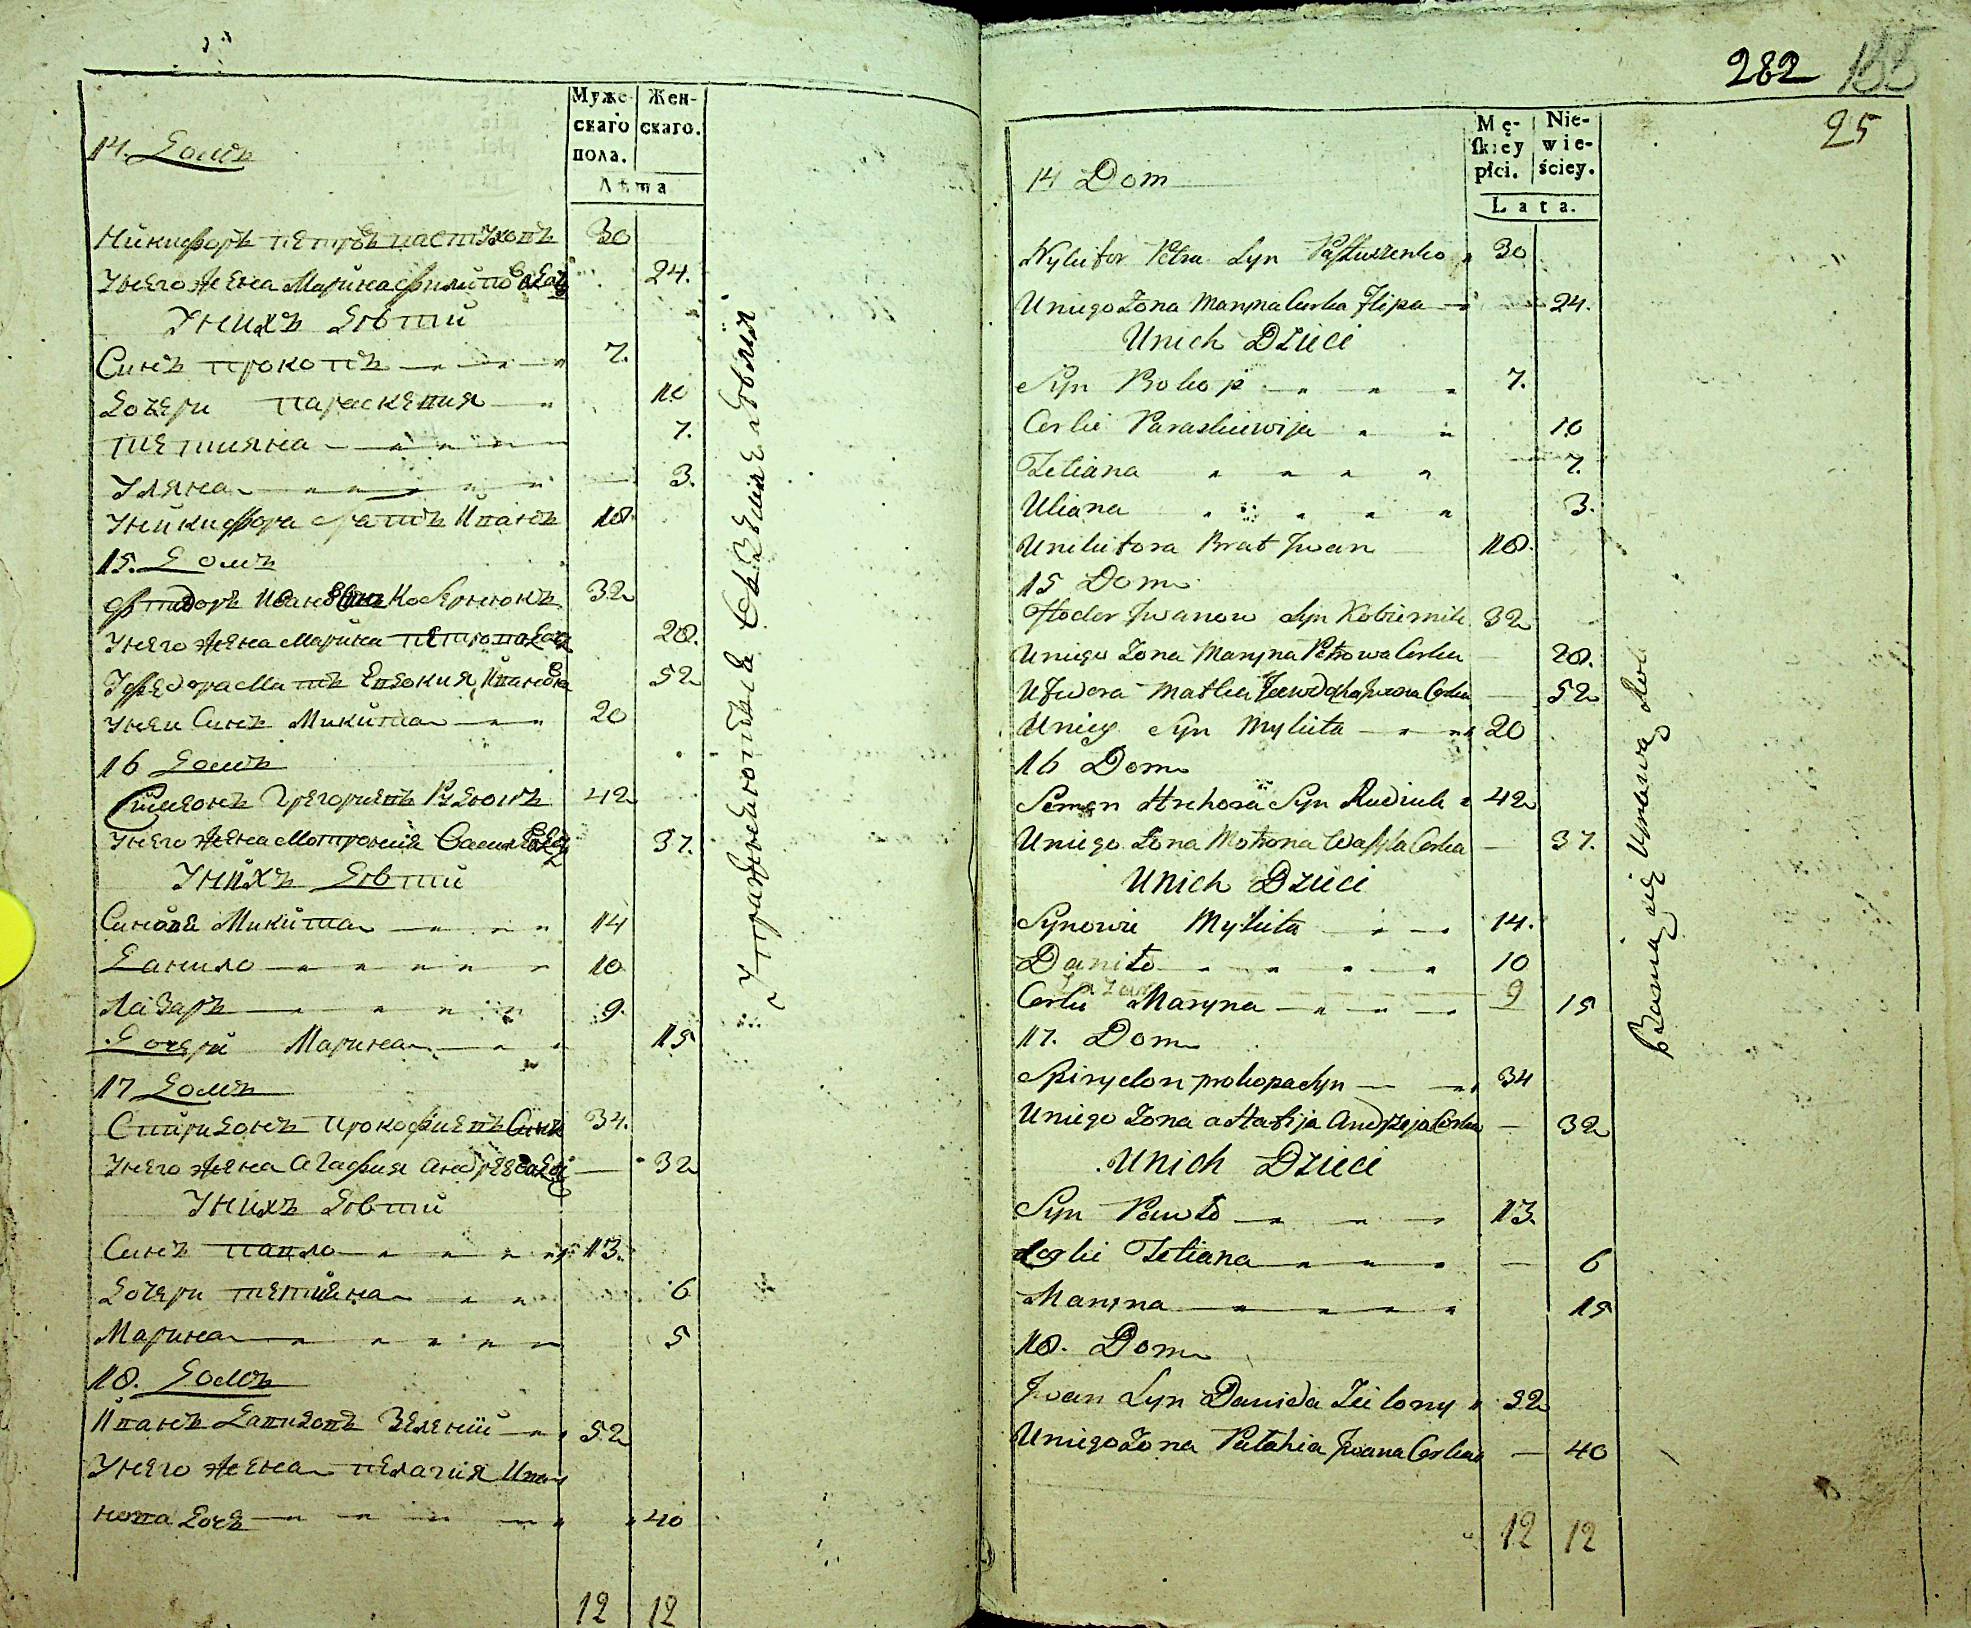 Муже-
скаго
пола.
Жен-
скаго.
Лѣта
14. Домъ
Никифоръ Петровъ Пастухопъ 30
Унего Жена Марина Филипова Дочъ 24.
Унихъ Дѣти
Синъ Прокопъ 7.
Дочери Параскевия 10
Тетияна 7.
Уляна 3.
Уникифора братъ Иванъ 18.
15. Домъ
Иванов Синъ 32
Унего Жена Марина Петрова Доч 28.
Уфедора Мать Евдокия Иванова 52
Унеи Синъ Микита 20
16 Домъ
Симеонъ Григориевъ Рудюкъ 42
Унего Жена Мотрония Васил Доч 37.
Унихъ Дѣти
Синове Микита 14
Данило 10
Лазаръ 9.
Дочери Марина 15
17 Домъ
Спиридонъ Прокофиевъ Синъ 34.
Унего Жена Агафия Андреева Доч 32
Унихъ Дѣти
Синъ Павло 13.
Дочери Тетияна 6
Марина 5
18. Домъ
Иванъ Давидовъ Зелений 52
Унего Жена Пелагия Ива
нова Дочъ 40
12 12
282
25
Mę-
skiey
płci.
Nie-
wie-
ściey.
Lata.
14 Dom
Nykifor Petra Syn Pastuszenko 30
Uniego Zona Maryna Corka Filipa 24.
Unich Dzieci
Syn Prokop 7.
Corki Paraskiewija 10
Tetiana 7.
Uliana 3.
Unikifora Brat Iwan 18.
15 Dom
Iwanow Syn 32
Uniego Zona Maryna Petrowa Corka 28.
Matka Iwana Corka 52
Uniey Syn Mykita 20
16 Dom
Semen Hrehora Syn Rudiuk 42
Uniego Zona Motrona Wasyla Corka 37.
Unich Dzieci
Synowie Mykita 14.
Daniło 10
Łazar 9
Corki Maryna 15
17. Dom
Spirydon Prokopa Syn 34
Uniego Zona Andrzeja Corka 32
Unich Dzieci
Syn Pawło 13.
Corki Tetiana 6
Maryna 15
18. Dom
Iwan Syn Dawida Zielony 52
Uniego Zona Iwana Corka 40
12 12